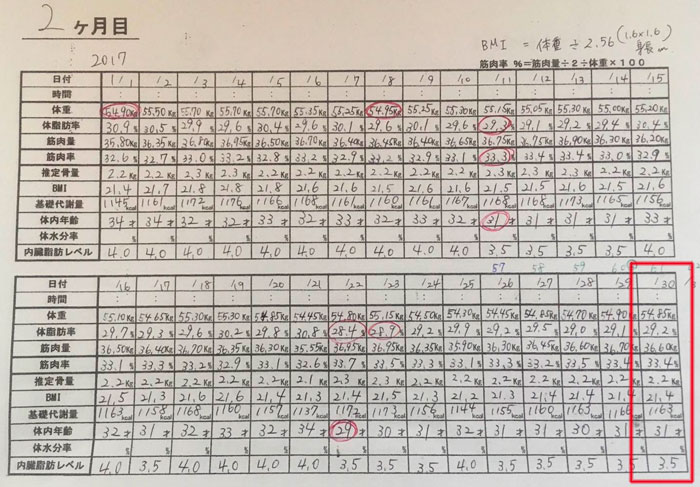 2ヶ月目
2017
BMI = 体重 ÷ 2.56 (1.6×1.6) 身長m
筋肉率 %=筋肉量÷2÷体重×100
日付 1/1 1/2 1/3 1/4 1/5 1/6 1/7 1/8 1/9 1/10 1/11 1/12 1/13 1/14 1/15
時間 : : : : : : : : : : : : : : :
体重 54.90Kg 55.50Kg 55.70Kg 55.70Kg 55.70Kg 55.35Kg 55.25Kg 54.95Kg 55.25Kg 55.30Kg 55.15Kg 55.05Kg 55.30Kg 55.00Kg 55.20Kg
体脂肪率 30.9% 30.5% 29.9% 29.6% 30.4% 29.6% 30.1% 29.6% 30.1% 29.6% 29.3% 29.1% 29.2% 29.4% 30.4%
筋肉量 35.80Kg 36.35Kg 36.80Kg 36.95Kg 36.50Kg 36.70Kg 36.40Kg 36.45Kg 36.40Kg 36.65Kg 36.75Kg 36.75Kg 36.90Kg 36.30Kg 36.20Kg
筋肉率 32.6% 32.7% 33.0% 33.2% 32.8% 33.2% 32.9% 33.2% 32.9% 33.1% 33.3% 33.4% 33.4% 33.0% 32.9%
推定骨量 2.2Kg 2.2Kg 2.3Kg 2.3Kg 2.2Kg 2.2Kg 2.2Kg 2.2Kg 2.2Kg 2.2Kg 2.3Kg 2.3Kg 2.3Kg 2.2Kg 2.2Kg
BMI 21.4 21.7 21.8 21.8 21.8 21.6 21.6 21.4 21.6 21.6 21.5 21.5 21.6 21.5 21.6
基礎代謝量 1145kcal 1161kcal 1172kcal 1176kcal 1166kcal 1168kcal 1161kcal 1160kcal 1161kcal 1167kcal 1168kcal 1168kcal 1173kcal 1165kcal 1156kcal
体内年齢 34才 34才 32才 32才 33才 32才 33才 32才 33才 32才 31才 31才 31才 31才 33才
体水分率 % % % % % % % % % % % % % % %
内臓脂肪レベル 4.0 4.0 4.0 4.0 4.0 4.0 4.0 4.0 4.0 4.0 3.5 3.5 3.5 3.5 4.0
57 58 59 60 61
日付 1/16 1/17 1/18 1/19 1/20 1/21 1/22 1/23 1/24 1/25 1/26 1/27 1/28 1/29 1/30
時間 : : : : : : : : : : : : : : :
体重 55.10Kg 54.65Kg 55.30Kg 55.30Kg 54.85Kg 54.45Kg 54.80Kg 55.15Kg 54.50Kg 54.30Kg 54.45Kg 54.85Kg 54.70Kg 54.90Kg 54.85Kg
体脂肪率 29.7% 29.3% 29.6% 30.2% 29.8% 30.8% 28.4% 28.9% 29.2% 29.9% 29.2% 29.5% 29.0% 29.1% 29.2%
筋肉量 36.50Kg 36.40Kg 36.70Kg 36.35Kg 36.30Kg 35.55Kg 36.95Kg 36.95Kg 36.35Kg 35.90Kg 36.35Kg 36.45Kg 36.60Kg 36.70Kg 36.60Kg
筋肉率 33.1% 33.3% 33.2% 32.9% 33.1% 32.6% 33.7% 33.5% 33.3% 33.1% 33.3% 33.2% 33.5% 33.4% 33.4%
推定骨量 2.2Kg 2.2Kg 2.2Kg 2.2Kg 2.2Kg 2.1Kg 2.3Kg 2.3Kg 2.2Kg 2.2Kg 2.2Kg 2.2Kg 2.2Kg 2.2Kg 2.2Kg
BMI 21.5 21.3 21.6 21.6 21.4 21.3 21.4 21.5 21.3 21.2 21.3 21.4 21.4 21.4 21.4
基礎代謝量 1163kcal 1158kcal 1168kcal 1160kcal 1157kcal 1137kcal 1172kcal 1173kcal 1156kcal 1144kcal 1155kcal 1160kcal 1163kcal 1166kcal 1163kcal
体内年齢 32才 31才 32才 33才 32才 34才 29才 30才 31才 32才 31才 31才 30才 31才 31才
体水分率 % % % % % % % % % % % % % % %
内臓脂肪レベル 4.0 3.5 4.0 4.0 4.0 4.0 3.5 3.5 3.5 4.0 3.5 3.5 3.5 3.5 3.5